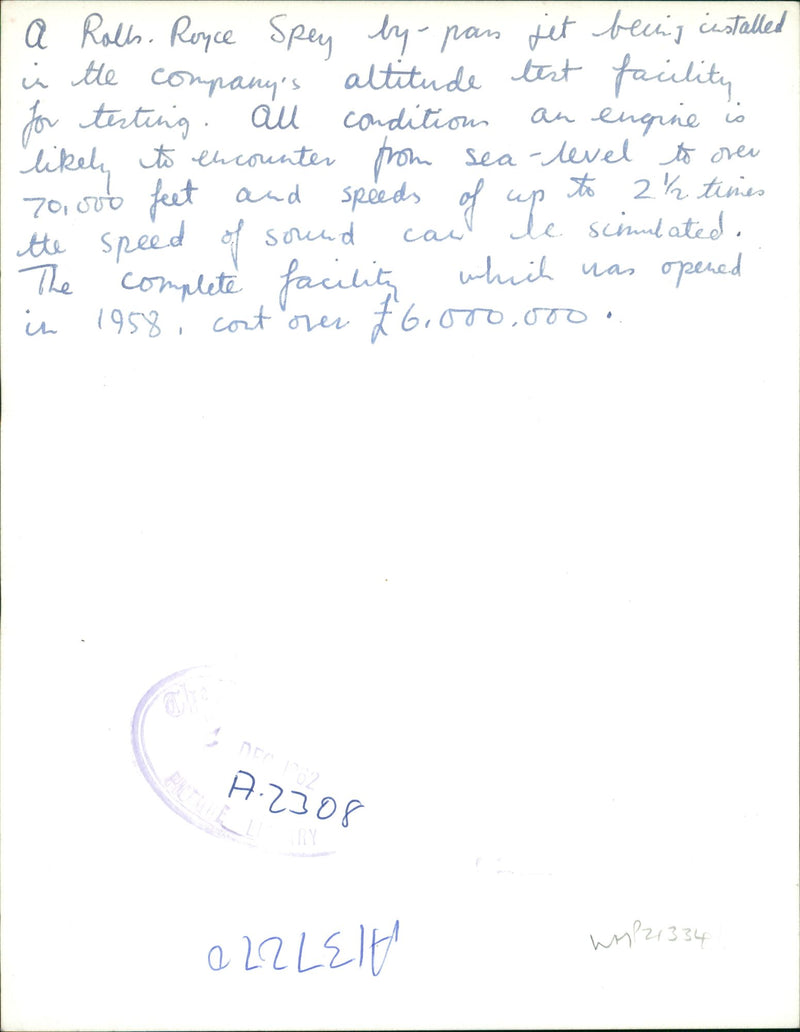 A Rolls-Royce Spey by-pass jet being installed
in the company's altitude test facility
for testing. All conditions an engine is
likely to encounter from sea-level to over
70,000 feet and speeds of up to 2½ times
the speed of sound can be simulated.
The complete facility which was opened
in 1958, cost over £6,000,000.
The
DEC 1962
A.2308
PICTURE LIBRARY
A137227D
WMP21334